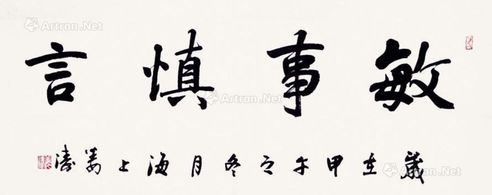 敏事慎言
歲在甲午之冬月海上喬濤
Artron.Net
Artron.Net
Artron.Net